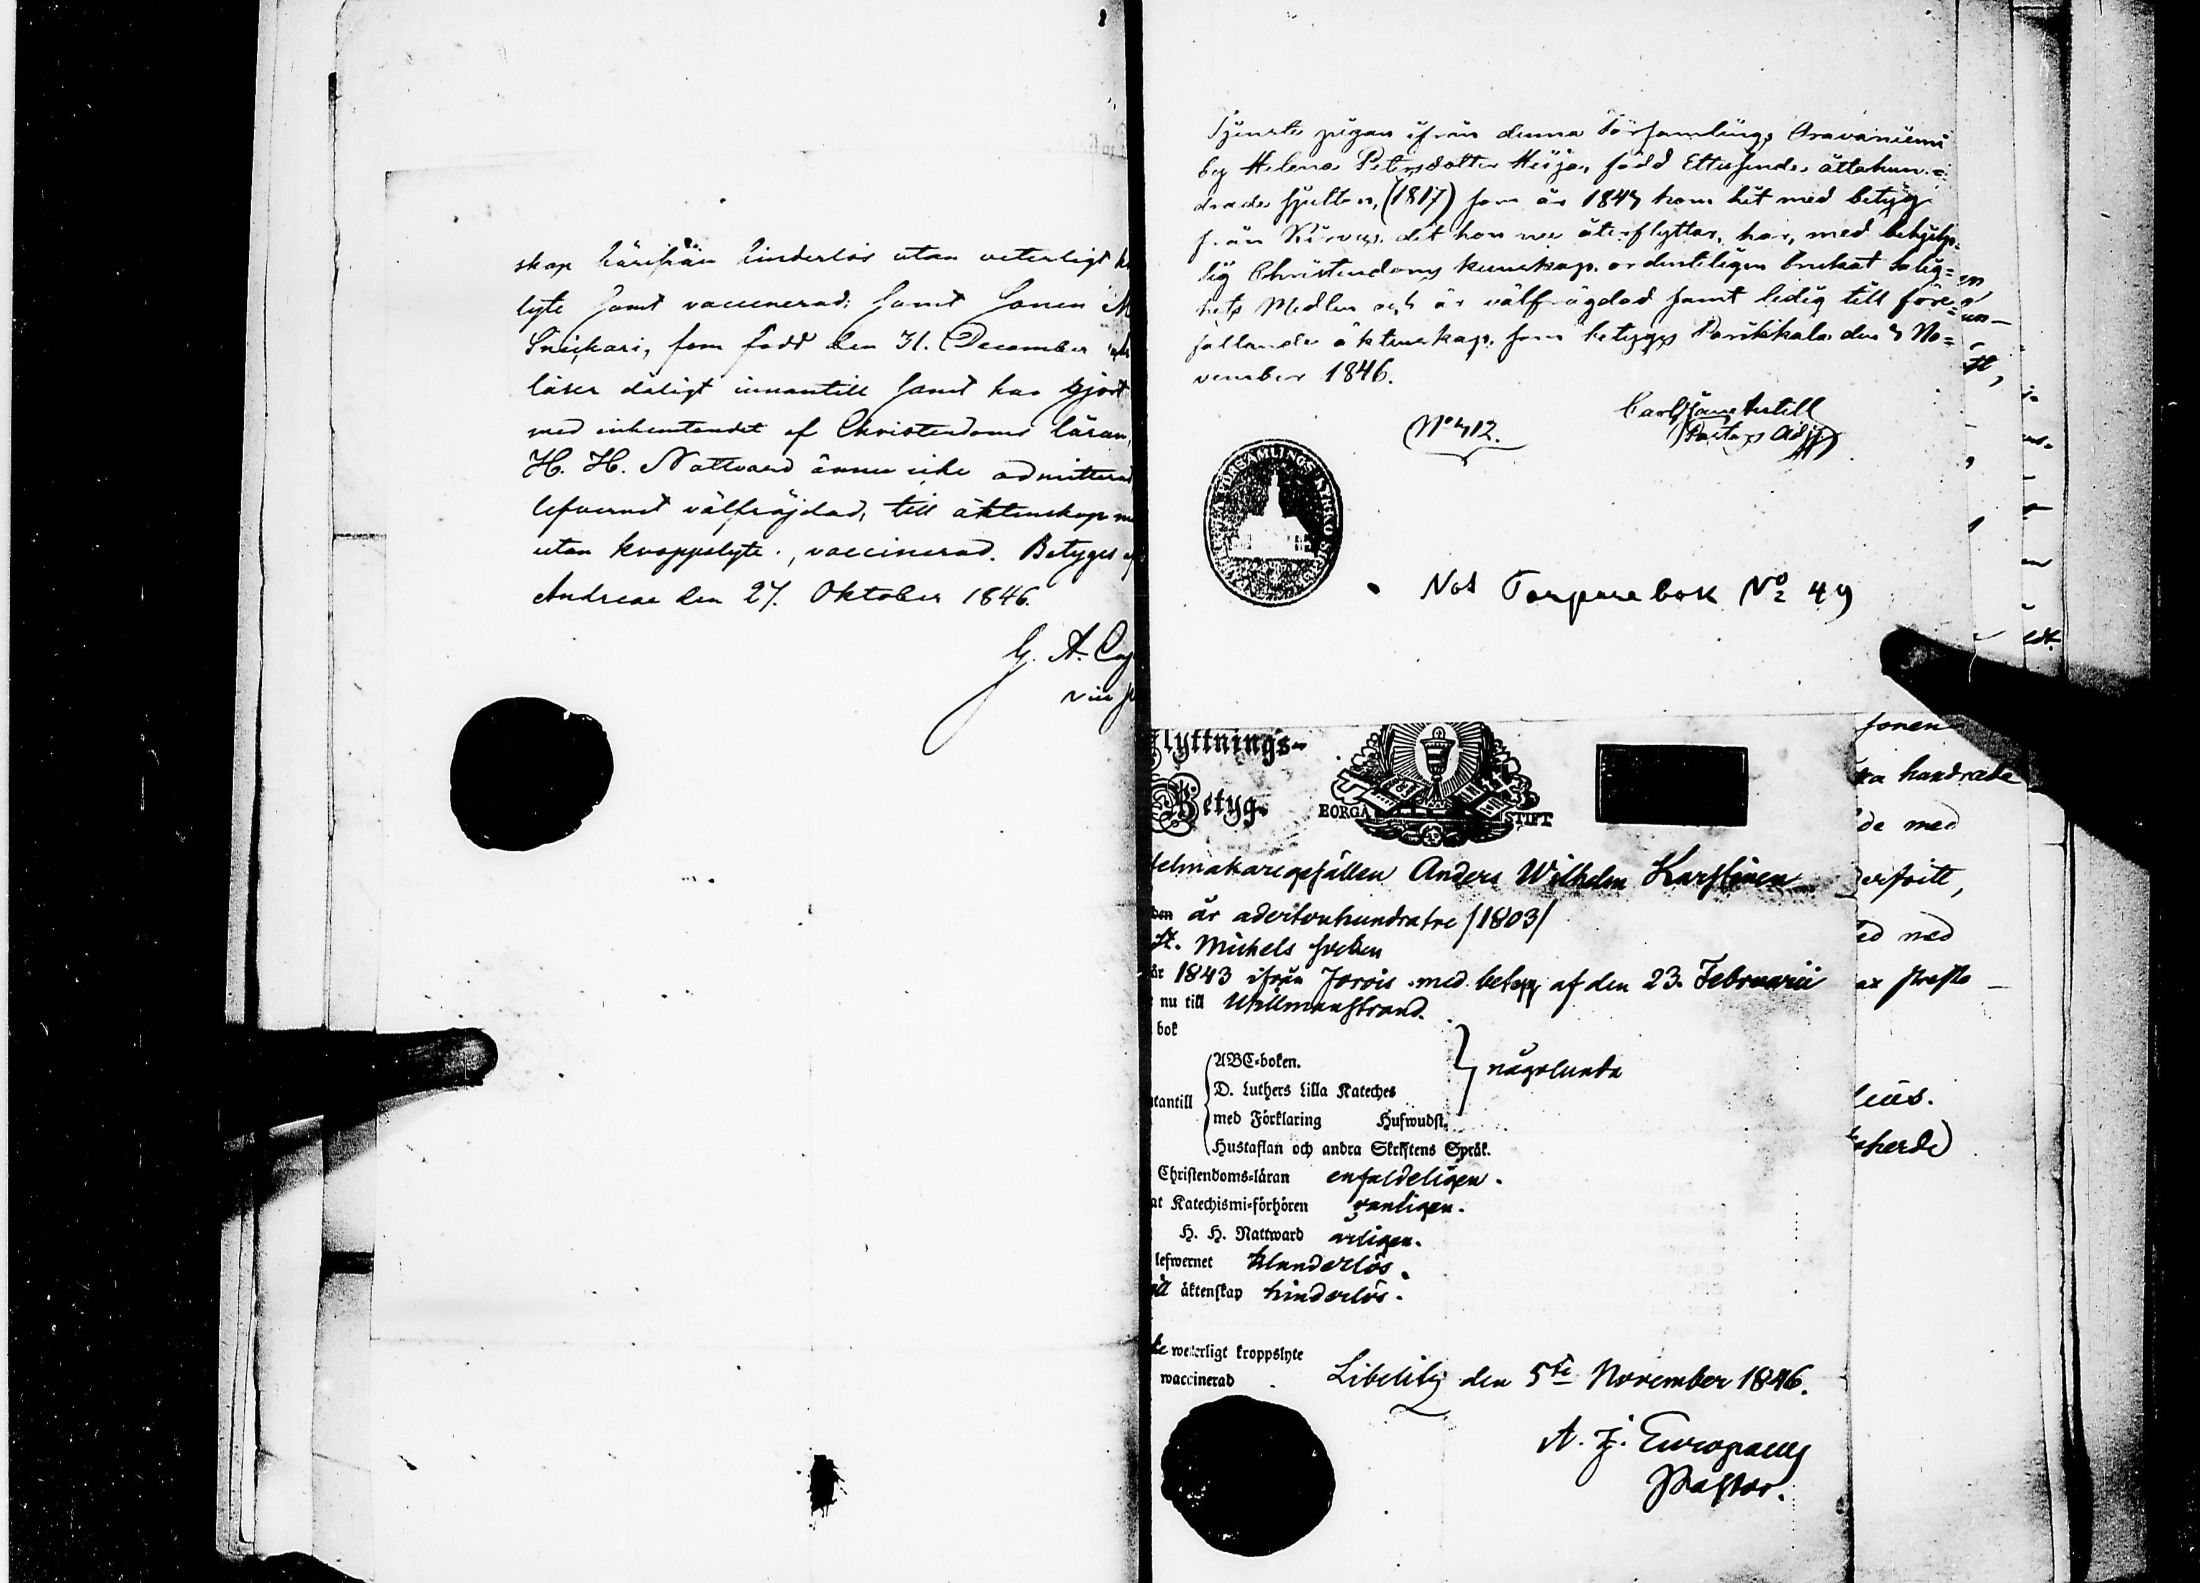 skap härifrån hinderlös utan veterligt
lyte samt vaccinerad; samt sonen
Snickari, som född den 31. December
läser dåligt innantill samt har gjort
med inhemtandet af Christendoms läran,
H. H. Nattvard ännu icke admitterad
lefvernet välfräjdad, till äktenskap
utan kroppslyte, vaccinerad. Betygas
Andreae den 27. Oktober 1846.
G. A.
Vice
Tjenste pigan ifrån denna Församlings Aravaniemi
by Helena Petersdotter Heija, född Ettusende åttahun-
drade sjutton, (1817) som år 1843 kom hit med betyg
från Kirvus, dit hon nu återflyttar, har, med behjelp-
lig Christendoms kunskap, ordentligen brukat Salig-
hets Medlen och är välfrägdad samt ledig till före-
fallande äktenskap, som betygas Parikkala den 3 No-
vember 1846.
Carl
Pastors Adj
No 412.
FÖRSAMLINGS
Not Torparebok No 49
Flyttnings-
Betyg.
BORGÅ STIFT
telmakaregesällen Anders Wilhelm Karstinen
den år adertonhundratre /1803/
St. Michels socken
år 1843 ifrån Jorois med betyg af den 23. Februarii
nu till Willmanstrand.
bok
ABC-boken.
D. Luthers Lilla Kateches
någolunda
utantill
med Förklaring Hufwudst.
Hustaflan och andra Skriftens Språk.
Christendoms-läran enfaldeligen.
at Katechismi-förhören vanligen.
H. H. Nattward årligen.
lefwernet klanderlös.
till äktenskap hinderlös.
weterligt kroppslyte
waccinerad
Libelits den 5te November 1846.
A. J. Europaeus
Pastor.
sonen
hundrade
de med
ed med